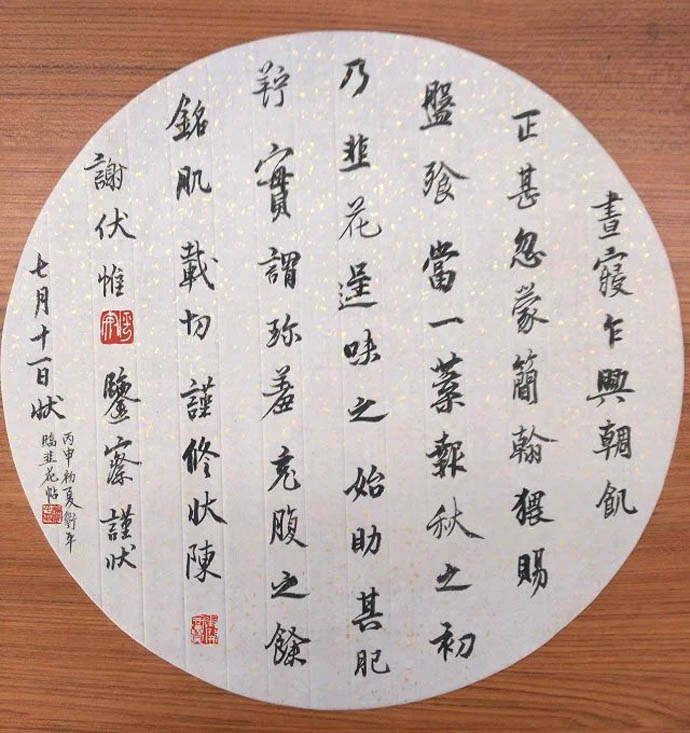 晝寢乍興輖飢
正甚忽蒙簡翰猥賜
盤飧當一葉報秋之初
乃韭花逞味之始助其肥
羜實謂珍羞充腹之餘
銘肌載切謹修狀陳
謝伏惟鑒察謹狀
七月十一日狀
丙申初夏衛平
臨韭花帖